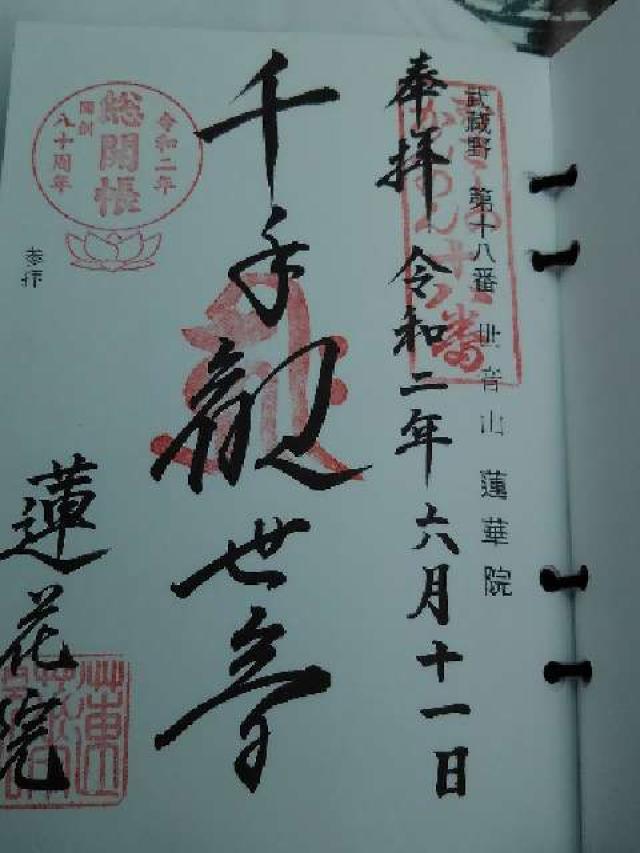 武蔵野 第十八番 世音山 蓮華院
奉拝 令和二年六月十一日
千手観世音
蓮花院
令和二年
総開帳
開創
八十周年
奉拝